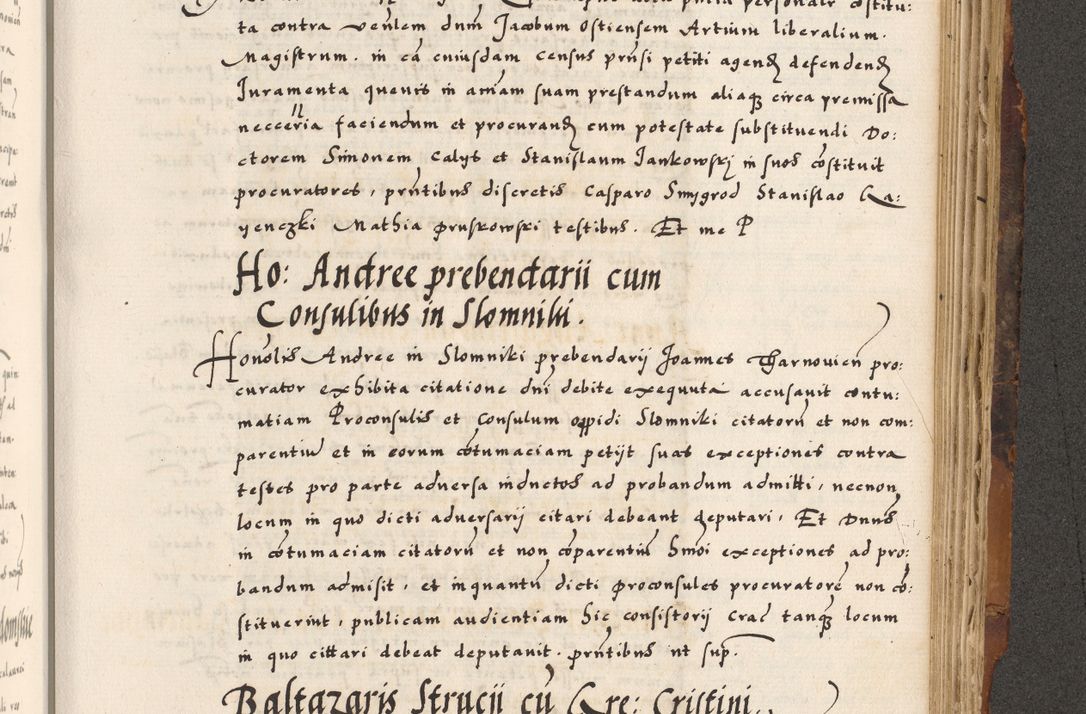 ta contra venlem dnm Jacobum Ostiensem Artium liberalium.
Magistrum. in cã cuiusdam census prnsi petiti agend defendend
Juramenta quevis in amãm suam prestandum aliaqʒ circa premissa
necceria faciendum et procurand cum potestate substituendi Do:
ctorem Simonem Calijs et Stanislaum Jankowskj in suos cõstituit
procuratores, prntibus discretis Casparo Smygrod Stanislao Ra:
yenczki Mathia Pruskowski testibus. Et me P
Ho: Andree prebendarii cum
Consulibus in Slomniki.
Honolis Andree in Slomniki prebendarij Joannes Tharnouien pro:
curator exhibita citatione dni debite exequuta accusauit contu:
matiam Proconsulis et Consulum oppidi Slomniki citatorũ et non com:
parentiũ et in eorum cõtumaciam petijt suas exceptiones contra
testes pro parte adversa inductos ad probandum admitti, necnon
locum in quo dicti adversarij citari debeant deputari, Et Dnus
in cõtumaciam citatorũ et non cõparentiũ hmoi exceptiones ad pro:
bandum admisit, et inquantũ dicti proconsules procuratorẽ non cõ:
stituerint, publicam audientiam hic consistorij Crac tanqʒ locum
in quo cittari debeat deputauit. prntibus ut sup.
Baltazaris Strucij cũ Gre: Cristini.